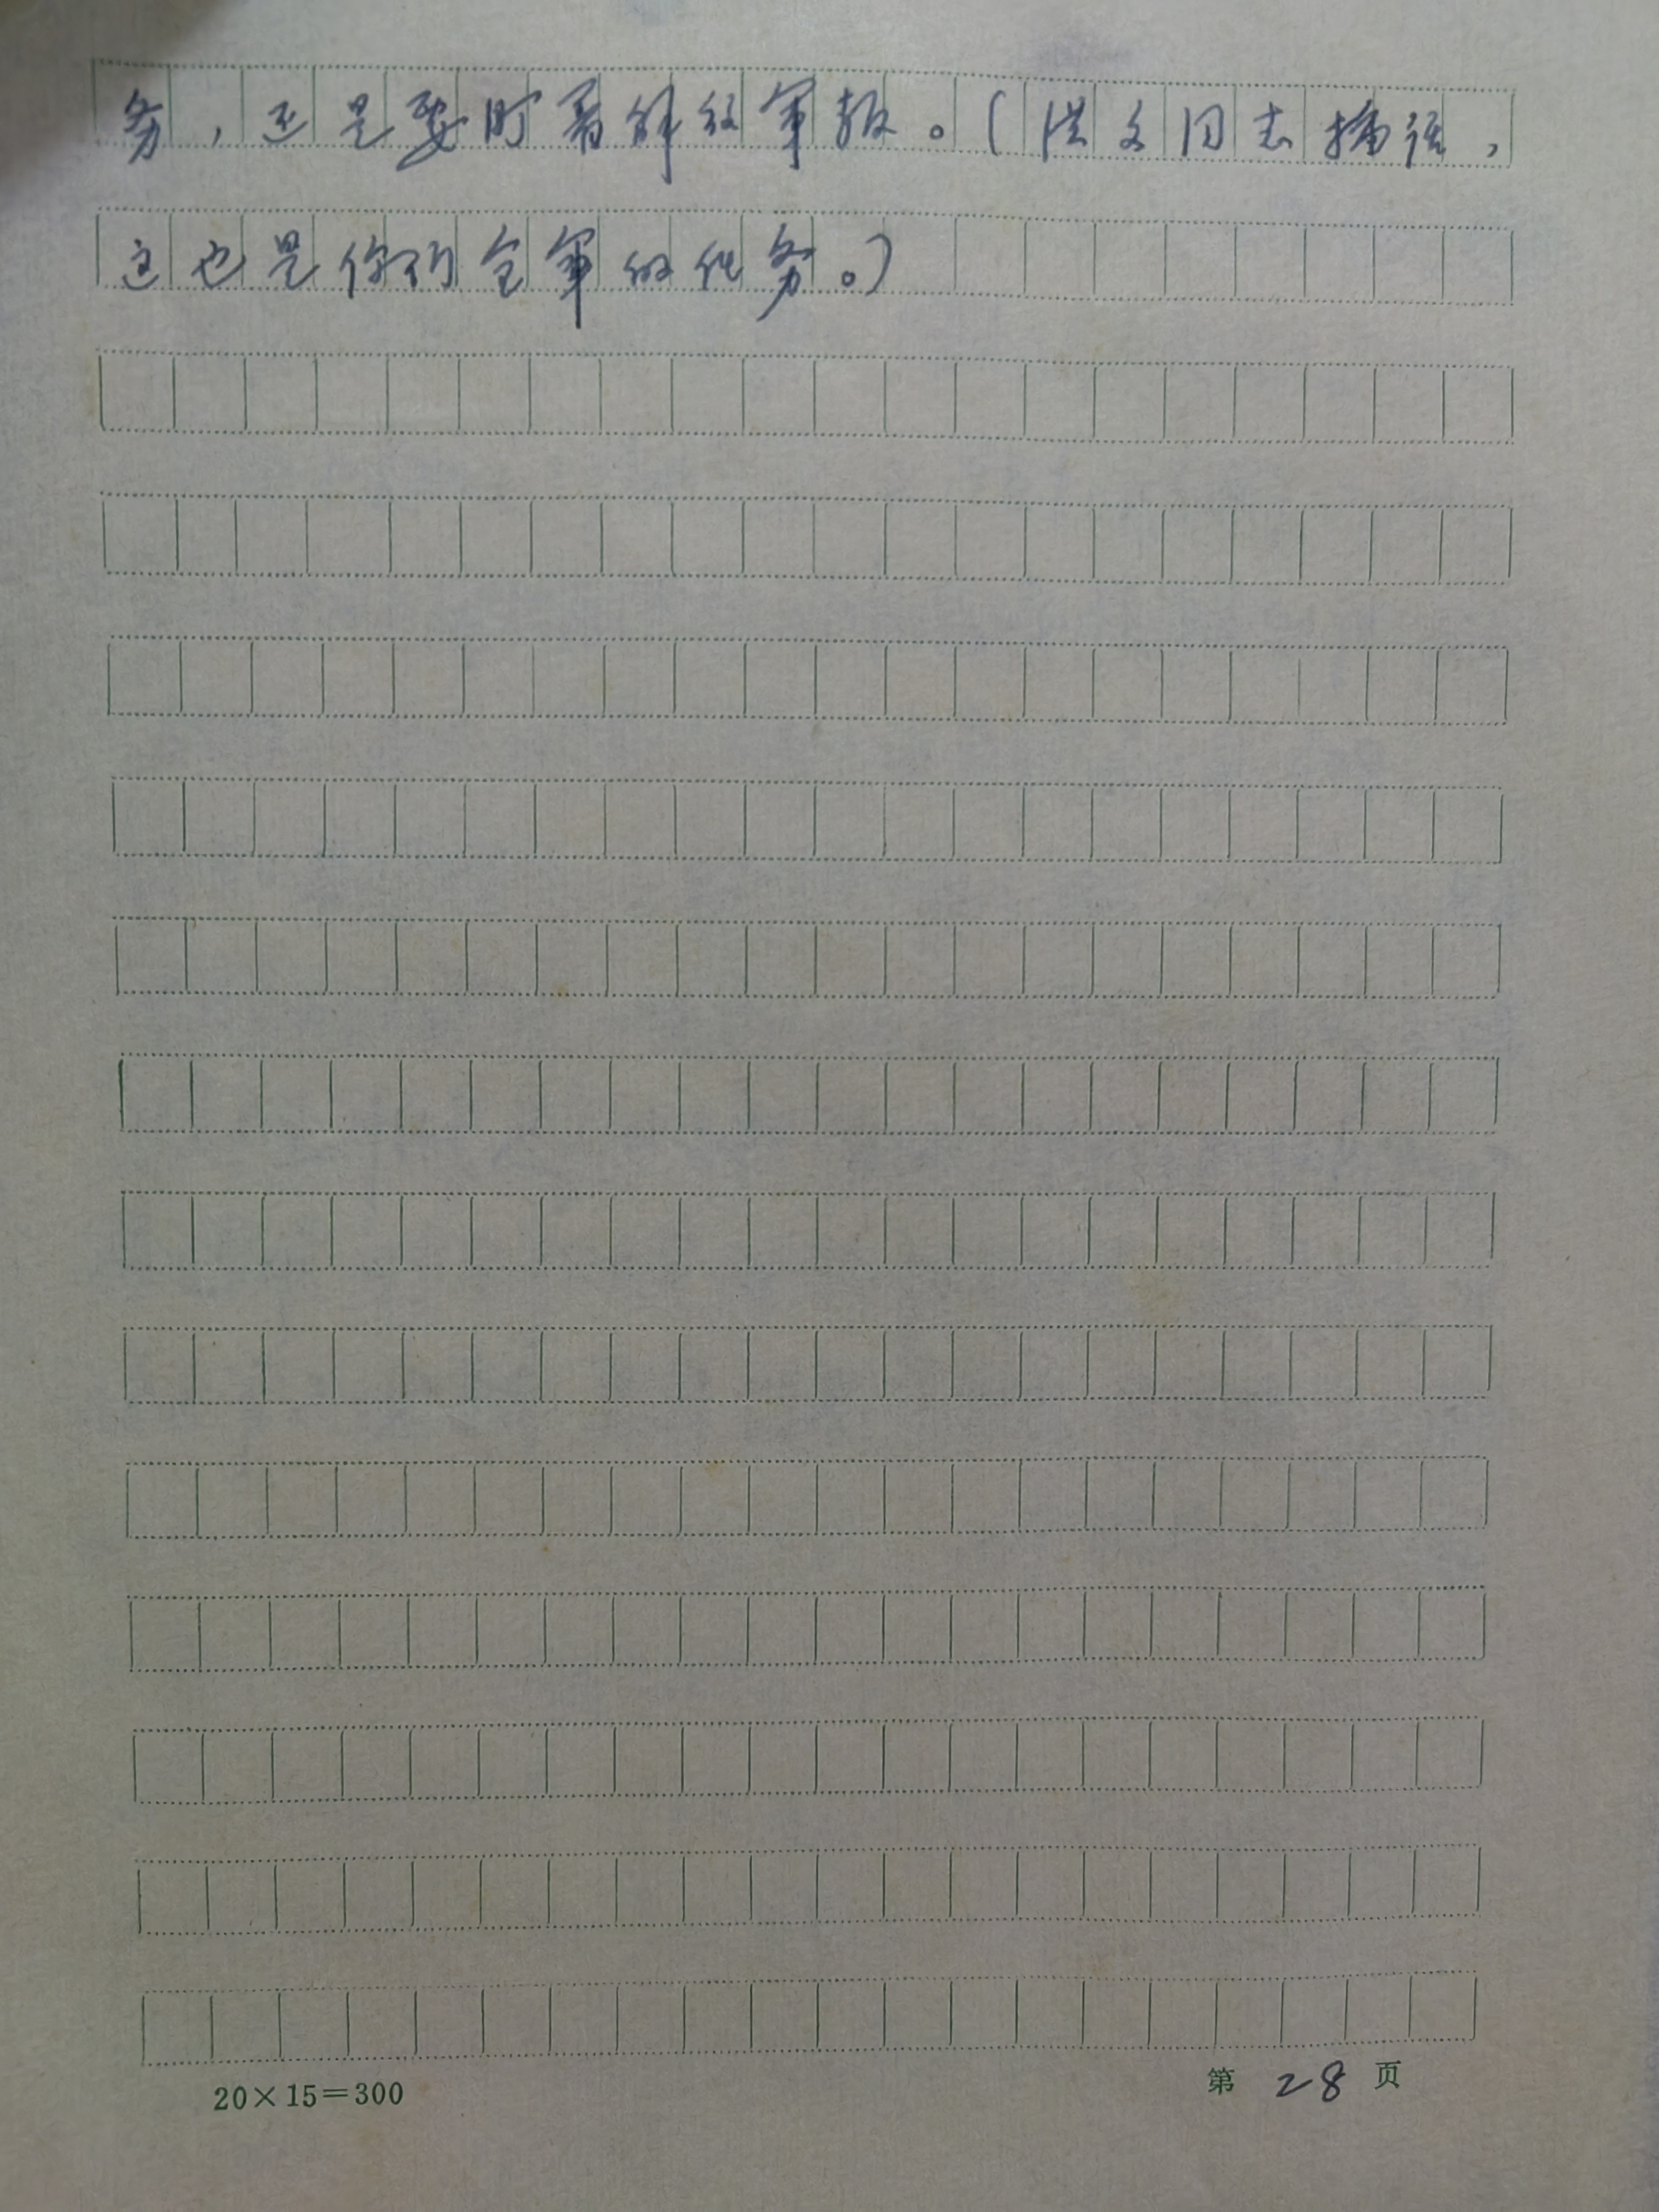 务，还是要盯着解放军报。（洪文同志插话，
这也是你们全军的任务。）
20×15=300
第 28 页